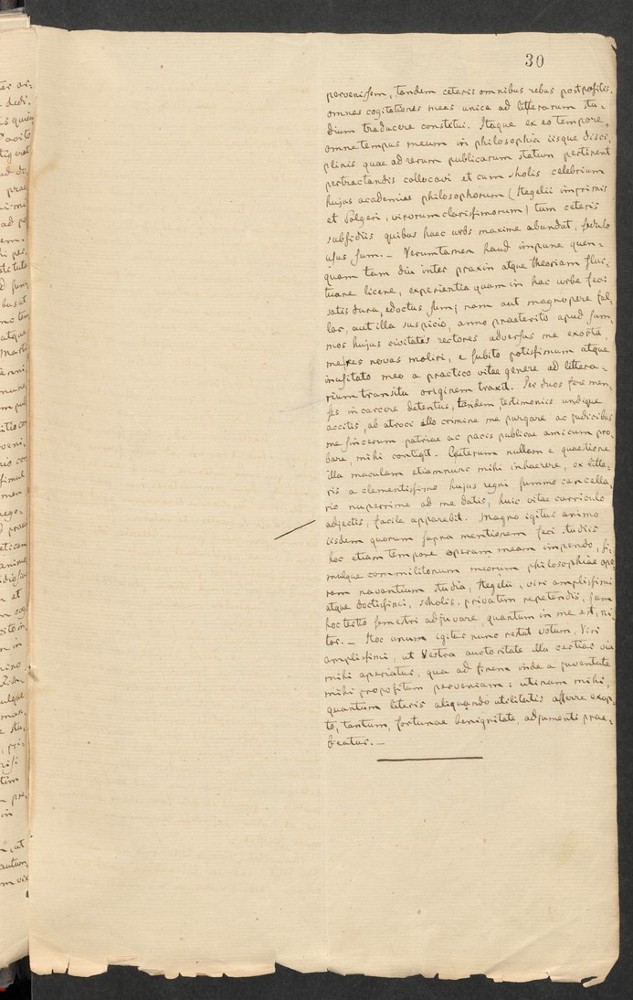 30
pervenissem, tandem ceteris omnibus rebus postpositis,
omnes cogitationes meas unice ad litterarum stu-
dium traducere constitui. Itaque ex eo tempore,
omne tempus meum in philosophia iisque disci-
plinis quae ad rerum publicarum statum pertinent
pertractandis collocavi et cum scholis celebrium
hujus academiae philosophorum (Hegelii imprimis
et Solgeri, virorum clarissimorum) tum ceteris
subsidiis quibus haec urbs maxime abundat, sedulo
usus sum. — Verumtamen haud impune quem-
quam tam diu inter praxin atque theoriam fluc-
tuare licere, experientia quam in hac urbe feci
satis dura, edoctus sum; nam aut magnopere fal-
lor, aut illa suspicio, anno praeterito apud sum-
mos hujus civitatis rectores adversus me exorta,
me res novas moliri, e subito potissimum atque
inusitato meo a practico vitae genere ad littera-
rium transitu originem traxit. Per duos fere men-
ses in carcere detentus, tandem, testimoniis undique
accitis, ab atroci illo crimine me purgare ac judicibus
me sincerum patriae ac pacis publicae amicum pro-
bare, mihi contigit. Ceterum nullam e quaestione
illa maculam etiamnunc mihi inhaerere, ex litte-
ris a clementissimo hujus regni summo cancella-
rio nuperrime ad me datis, huic vitae curriculo
adjectis, facile apparebit. Magno igitur animo
iisdem quorum supra mentionem feci studiis
hoc etiam tempore operam meam impendo, si-
mulque commilitonum meorum philosophiae ope-
ram navantium studia, Hegelii, viri amplissimi
atque doctissimi, scholis privatim repetendis, jam
hoc tertio semestri adjuvare, quantum in me est, ni-
tor. — Hoc unum igitur nunc restat votum, Viri
amplissimi, ut Vestra auctoritate illa certior via
mihi aperiatur, qua ad finem inde a juventute
mihi propositum perveniam; utinam mihi,
quantum literis aliquando utilitatis afferre exop-
to, tantum, fortunae benignitate, adjumenti prae-
beatur. —